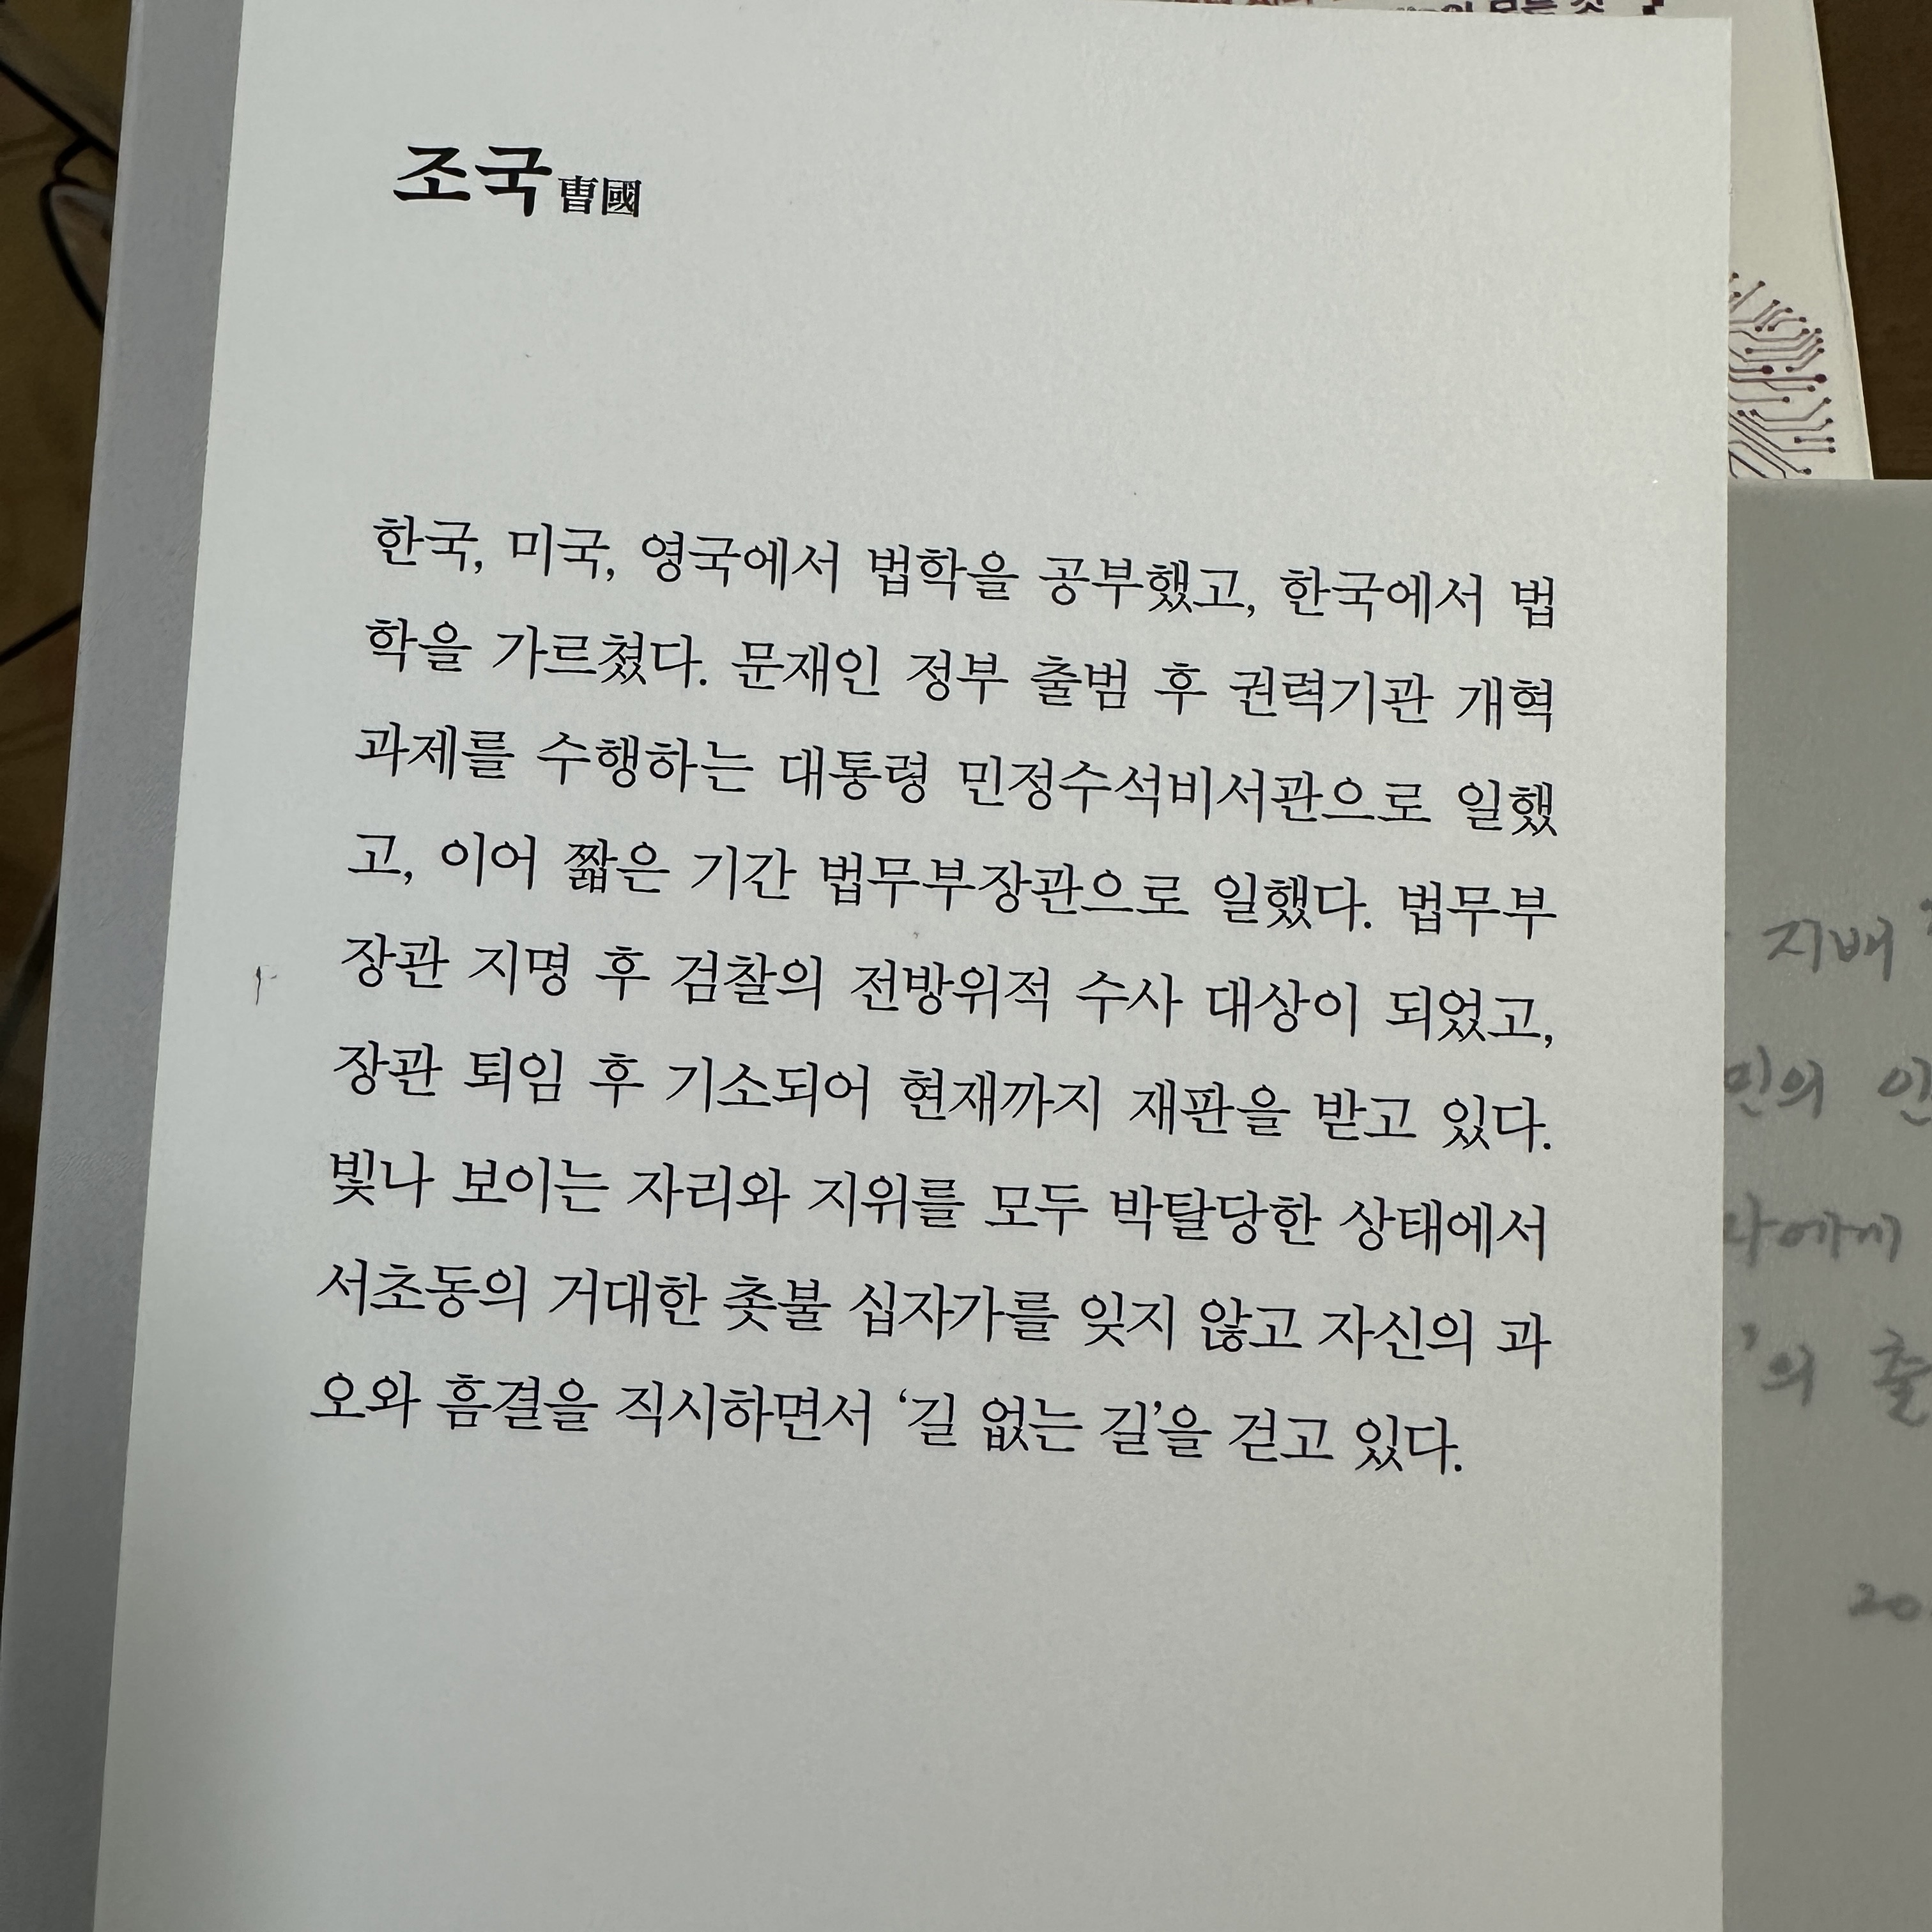 조국 曺國
한국, 미국, 영국에서 법학을 공부했고, 한국에서 법
학을 가르쳤다. 문재인 정부 출범 후 권력기관 개혁
과제를 수행하는 대통령 민정수석비서관으로 일했
고, 이어 짧은 기간 법무부장관으로 일했다. 법무부
장관 지명 후 검찰의 전방위적 수사 대상이 되었고,
장관 퇴임 후 기소되어 현재까지 재판을 받고 있다.
빛나 보이는 자리와 지위를 모두 박탈당한 상태에서
서초동의 거대한 촛불 십자가를 잊지 않고 자신의 과
오와 흠결을 직시하면서 ‘길 없는 길’을 걷고 있다.
지배